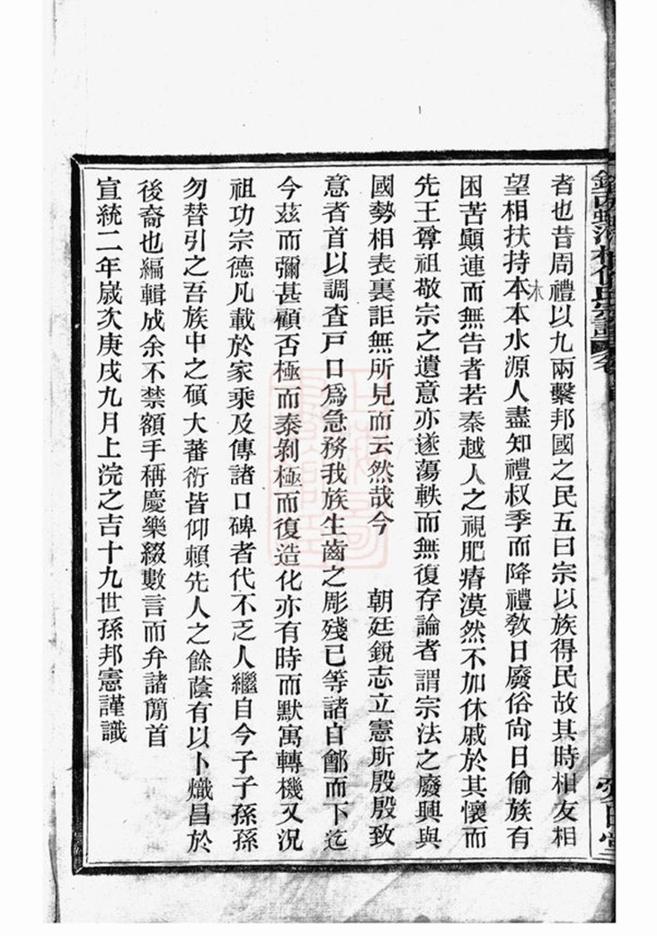 者也昔周禮以九兩繫邦國之民五曰宗以族得民故其時相友相
望相扶持本本水源人盡知禮叔季而降禮敎日廢俗尙日偷族有
木
困苦顚連而無告者若秦越人之視肥瘠漠然不加休戚於其懷而
先王尊祖敬宗之遺意亦遂蕩軼而無復存論者謂宗法之廢興與
國勢相表裏詎無所見而云然哉今 朝廷銳志立憲所殷殷致
意者首以調查戸口爲急務我族生齒之彫殘已等諸自鄶而下迄
今茲而彌甚顧否極而泰剝極而復造化亦有時而默寓轉機又況
祖功宗德凡載於家乘及傳諸口碑者代不乏人繼自今子子孫孫
勿替引之吾族中之碩大蕃衍皆仰賴先人之餘蔭有以卜熾昌於
後裔也編輯成余不禁額手稱慶樂綴數言而弁諸簡首
宣統二年歲次庚戌九月上浣之吉十九世孫邦憲謹識